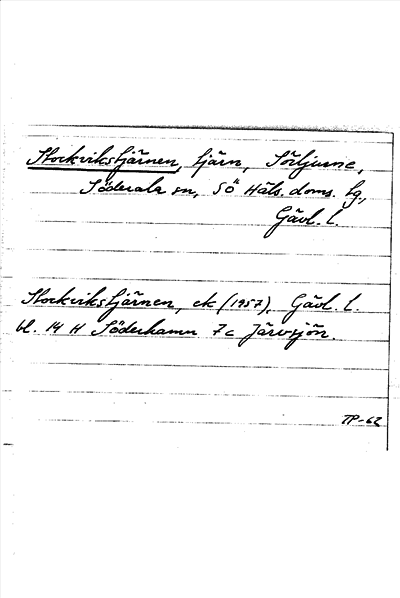 Stockvikstjärnen, tjärn, Södljusne,
Söderala sn, SÖ Häls. doms. tg.,
Gävl. l.
Stockvikstjärnen, ek (1957), Gävl. l.
bl. 14 H Söderhamn 7c Järvsjön.
TP-62